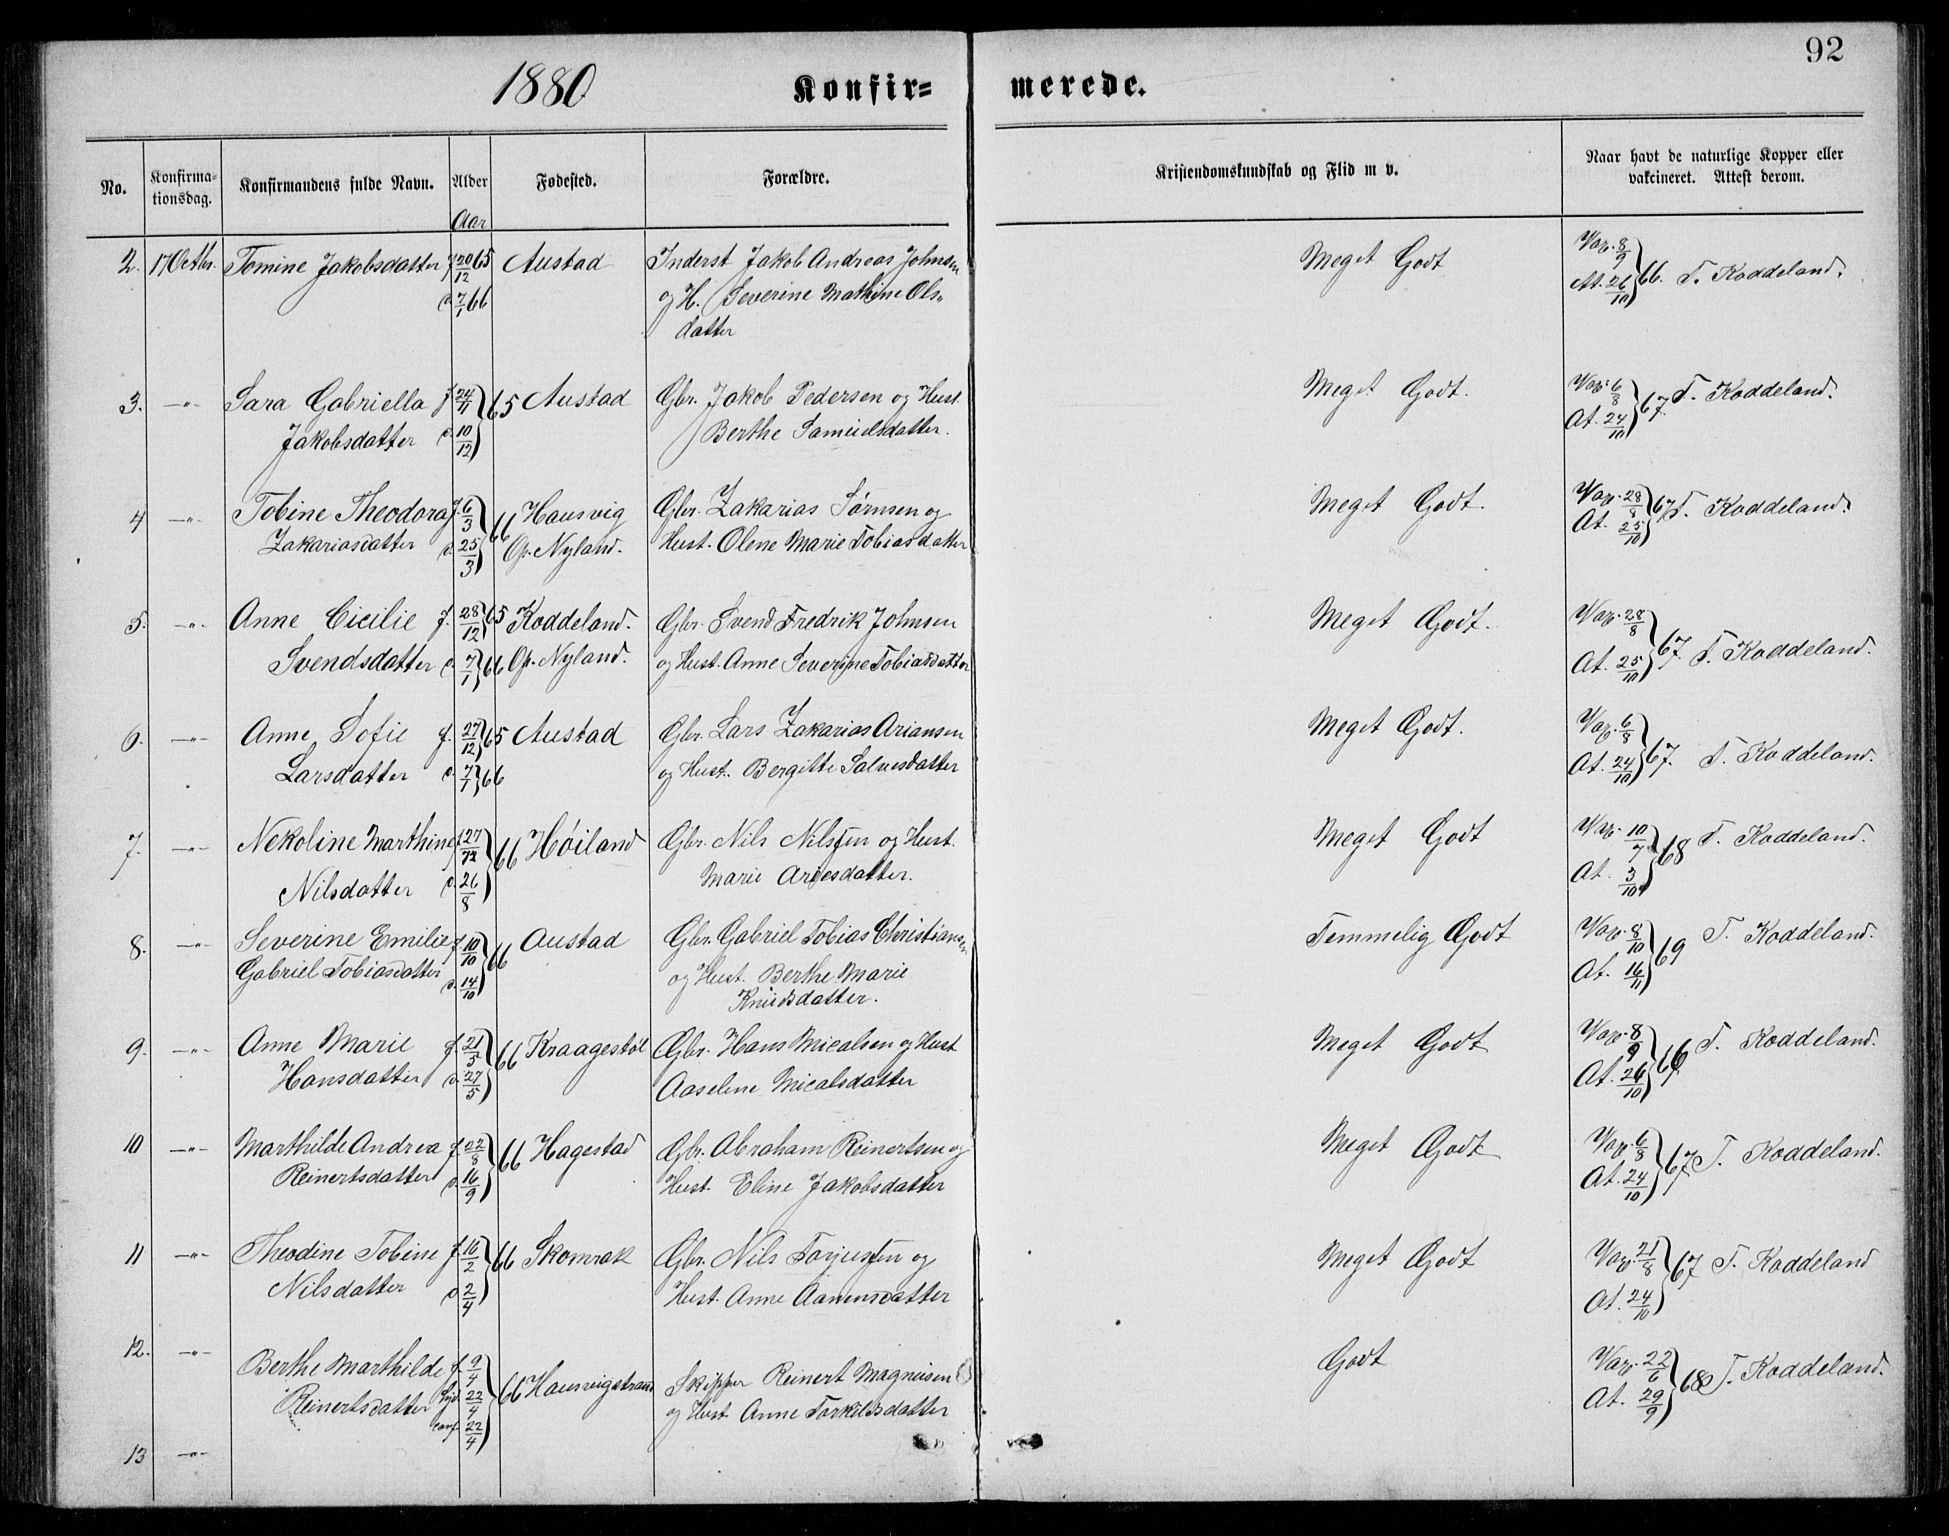 92
1880 Konfir= merede.
No. Konfirma-tionsdag. Konfirmandens fulde Navn. Alder Fødested. Forældre. Kristendomskundskab og Flid m v. Naar havt de naturlige Kopper eller vakcineret. Attest derom.
Aar
2. 17 Octbr. Tomine Jakobsdatter f 20/12 65 Austad Inderst Jakob Andreas Johnsen Meget Godt Vac. 8/9
d. 7/1 66 og H. Severine Mathine Ols- At. 26/10 66. T. Koddeland.
datter
3. -"- Sara Gabriella f 24/11 65 Austad Gbr. Jakob Pedersen og Hust. Meget Godt. Vac. 6/8 67. T. Koddeland.
Jakobsdatter d. 10/12 Berthe Samuelsdatter. At. 24/10
4 -"- Tobine Theodora f. 6/3 66 Hausvig Gbr. Zakarias Sørnsen og Meget Godt. Vac. 28/8 67 T. Koddeland.
Zakariasdatter d. 25/3 Op. Nyland. Hust. Olene Marie Tobiasdatter At. 25/10
5. -"- Anne Cicilie f. 28/12 65 Koddeland. Gbr. Svend Fredrik Johnsen Meget Godt. Vac. 28/8
Svendsdatter d. 7/1 66 Op. Nyland. og Hust. Anne Severine Tobiasdatter At. 25/10 67. T. Koddeland.
6. -"- Anne Sofie f. 27/12 65 Austad Gbr. Lars Zakarias Ariansen Meget Godt. Vac. 6/8
Larsdatter d. 7/1 66 og Hust. Bergitte Salvesdatter At. 24/10 67. T. Koddeland.
7. -"- Nekoline Marthine f 27/ 66 Høiland Gbr. Nils Nilssen og Hust. Meget Godt Vac. 10/7 68 T. Koddeland.
Nilsdatter d. 26/8 Marie Arnesdatter. At. 3/10
8. -"- Severine Emilie f. 10/10 66 Austad Gbr. Gabriel Tobias Christiansen Temmelig Godt Vac. 8/10 69 T. Koddeland.
Gabriel Tobiasdatter d. 14/10 og Hust. Berthe Marie At. 16/11
Knudsdatter.
9. -"- Anne Marie f. 21/5 66 Kraagestøl Gbr. Hans Micalsen og Hust Meget Godt Vac. 8/9 66 T. Koddeland.
Hansdatter d. 27/5 Aaselene Micalsdatter At. 26/10
10 -"- Marthilde Andrea f. 22/8 66 Hagestad Gbr. Abraham Reinertsen og Meget Godt Vac. 6/8 67 T. Koddeland.
Reinertsdatter d. 16/9 Hust. Eline Jakobsdatter At. 24/10
11 -"- Theodine Tobine f. 16/2 66 Skomrak Gbr. Nils Torjussen og Meget Godt Vac. 21/8 67 T. Koddeland
Nilsdatter d 2/4 Hust. Anne Aanensdatter At. 24/10
12. -"- Berthe Marthilde f. 9/4 66 Hausvigstrand Skipper Reinert Magnusen Godt Vac. 22/6 68 T. Koddeland.
Reinertsdatter hjd. 22/4 og Hust. Anne Torkildsdatter At. 29/9
conf. 22/4
13 -"-